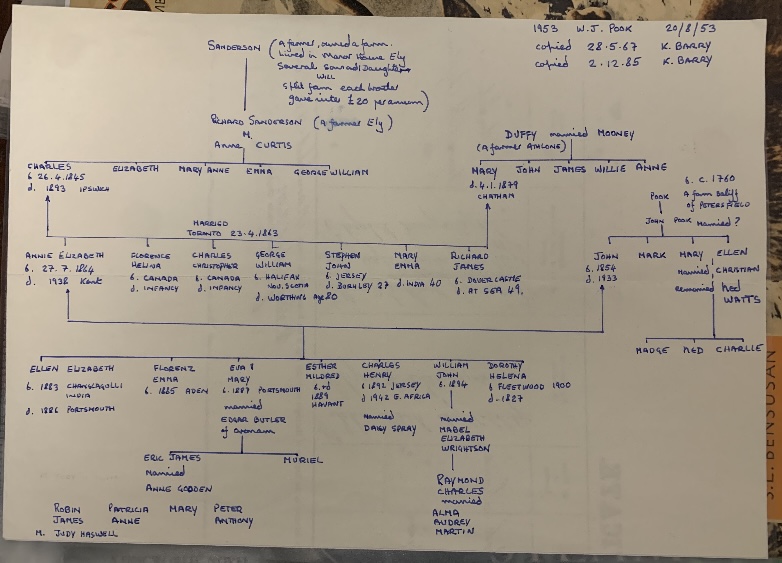 1953 W.J. POOK 20/8/53
copied 28.5.67 K. BARRY
copied 2.12.85 K. BARRY
SANDERSON (A farmer, owned a farm.
Lived in Manor House Ely
Several Sons and Daughters
WILL
Split farm each brother
gave sister £20 per annum)
RICHARD SANDERSON (A farmer Ely)
M.
Anne CURTIS
DUFFY married MOONEY
(A farmer ATHLONE)
CHARLES
b 26.4.1845
d. 1893 IPSWICH
ELIZABETH
MARY ANNE
EMMA
GEORGE WILLIAM
MARY
d. 4.1.1879
CHATHAM
JOHN
JAMES
WILLIE
ANNE
b. c. 1760
POOK A farm bailiff
of PETERSFIELD
JOHN POOK married ?
MARRIED
TORONTO 23.4.1863
ANNIE ELIZABETH
b. 27.7.1864
d. 1938 Kent
FLORENCE
HELINA
b. CANADA
d. INFANCY
CHARLES
CHRISTOPHER
b. CANADA
d. INFANCY
GEORGE
WILLIAM
b. HALIFAX
NOV. SCOTIA
d. WORTHING age 80
STEPHEN
JOHN
b. JERSEY
d. BURHLEY 27
MARY
EMMA
d. INDIA 40
RICHARD
JAMES
b. DOVER CASTLE
d. AT SEA 49.
JOHN
b. 1854
d. 1933
MARK
MARY
ELLEN
married CHRISTIAN
remarried Ned
WATTS
MADGE NED CHARLIE
ELLEN ELIZABETH
b. 1883
INDIA
d. 1886 PORTSMOUTH
FLORENZ
EMMA
b. 1885 ADEN
EVA
MARY
b. 1887 PORTSMOUTH
married
EDGAR BUTLER
of
ESTHER
MILDRED
1889
HAVANT
CHARLES
HENRY
b 1892 JERSEY
d 1942 E. AFRICA
Married
DAISY SPRAY
WILLIAM
JOHN
b. 1894
married
MABEL
ELIZABETH
WRIGHTSON
DOROTHY
HELENA
b FLEETWOOD 1900
d. 1827
ERIC JAMES
Married
ANNE GODDEN
MURIEL
RAYMOND
CHARLES
married
ALMA
AUDREY
MARTIN
ROBIN
JAMES
M. JUDY HASWELL
PATRICIA
ANNE
MARY
PETER
ANTHONY
S.L. BENSUSAN